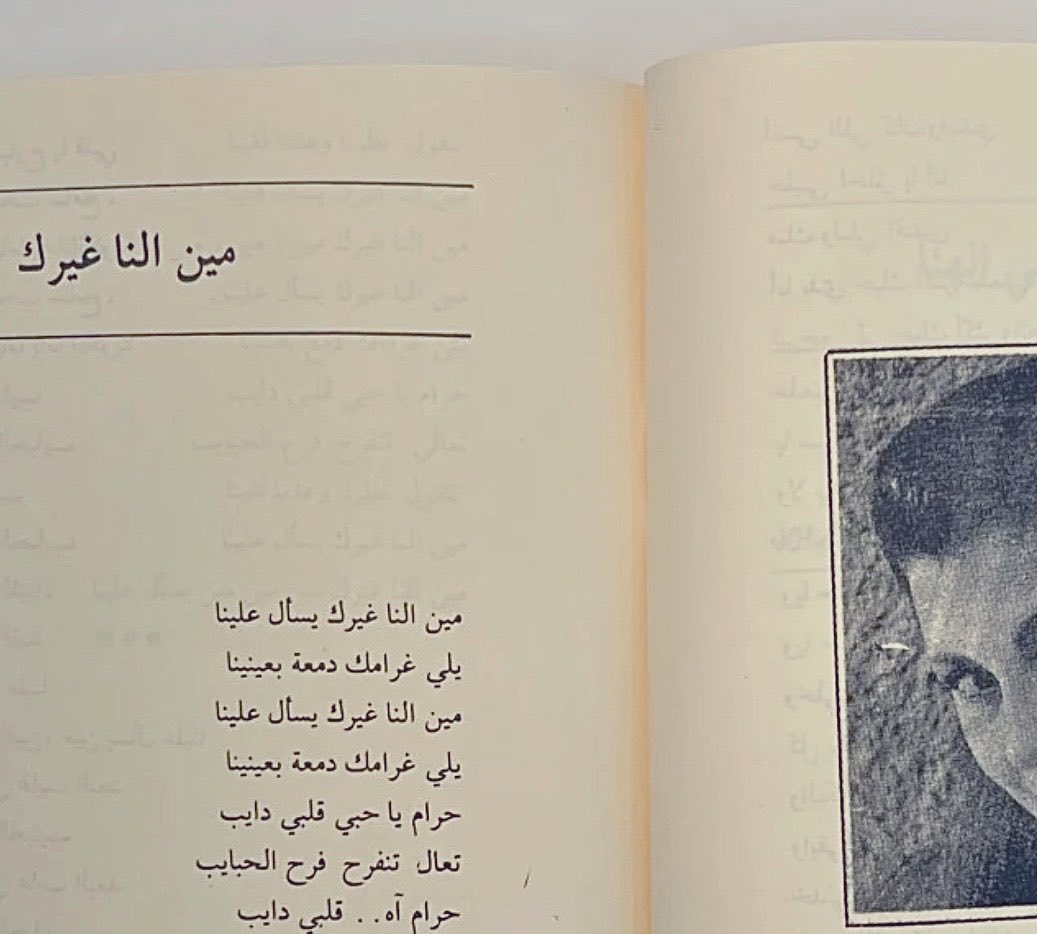 مين النا غيرك
مين النا غيرك يسأل علينا
يلي غرامك دمعة بعينينا
مين النا غيرك يسأل علينا
يلي غرامك دمعة بعينينا
حرام يا حبي قلبي دايب
تعال تنفرح فرح الحبايب
حرام آه . . قلبي دايب